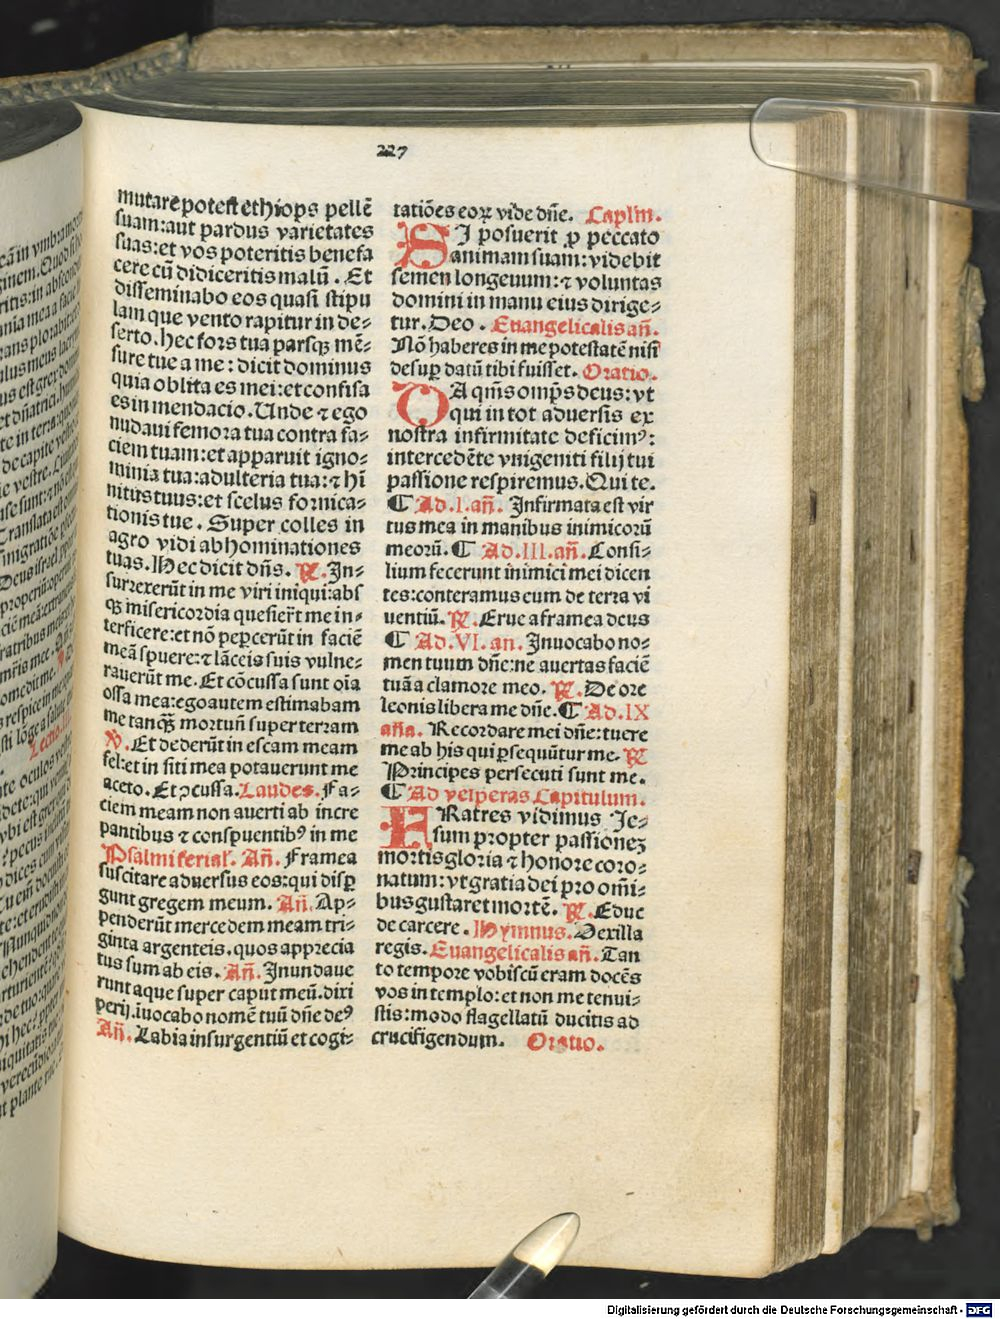 227
mutare potest ethiops pellē
suam: aut pardus varietates
suas: et vos poteritis benefa
cere cū didiceritis malū. Et
disseminabo eos quasi stipu
lam que vento rapitur in de⸗
serto. hec sors tua parsqꝫ mē⸗
sure tue a me: dicit dominus
quia oblita es mei: et confisa
es in mendacio. Unde ⁊ ego
nudaui femora tua contra fa⸗
ciem tuam: et apparuit igno⸗
minia tua: adulteria tua: ⁊ hī
nitus tuus: et scelus fornica⸗
tionis tue. Super colles in
agro vidi abhominationes
tuas. Hec dicit dn̄s. ℞. In⸗
surrexerūt in me viri iniqui: abs
qꝫ misericordia quesier̄t me in⸗
terficere: et nō peꝑcerūt in faciē
meā spuere: ⁊ lāceis suis vulne⸗
rauerūt me. Et cōcussa sunt oīa
ossa mea: ego autem estimabam
me tanqꝫ mortuū super terram
℣. Et dederūt in escam meam
fel: et in siti mea potauerunt me
aceto. Et ꝯcussa. Laudes. Fa⸗
ciem meam non auerti ab incre
pantibus ⁊ conspuentibꝰ in me
Psalmi ferial'. Añ. Framea
suscitare aduersus eos: qui disꝑ
gunt gregem meum. Añ. Ap⸗
penderūt mercedem meam tri⸗
ginta argenteis. quos apprecia
tus sum ab eis. Añ. Inundaue
runt aque super caput meū. dixi
perij. īuocabo nomē tuū dn̄e deꝰ
Añ. Labia insurgentiū et cogi⸗
tatiōes eoꝝ vide dn̄e. Caplm̄.
SI posuerit ꝓ peccato
animam suam: videbit
semen longeuum: ⁊ voluntas
domini in manu eius dirige⸗
tur. Deo. Euangelicalis añ.
Nō haberes in me potestatē nisi
desuꝑ datū tibi fuisset. Oratio.
DA qm̄s omp̄s deus: vt
qui in tot aduersis ex
nostra infirmitate deficimꝰ:
intercedēte vnigeniti filij tui
passione respiremus. Qui te.
¶ Ad .I. añ. Infirmata est vir
tus mea in manibus inimicorū
meorū. ¶ Ad .III. añ. Consi⸗
lium fecerunt inimici mei dicen
tes: conteramus eum de terra vi
uentiū. ℞. Erue a framea deus
¶ Ad .VI. an. Inuocabo no⸗
men tuum dn̄e: ne auertas faciē
tuā a clamore meo. ℞. De ore
leonis libera me dn̄e. ¶ Ad .IX
aña. Recordare mei dn̄e: tuere
me ab his qui ꝑsequūtur me. ℞
Principes persecuti sunt me.
¶ Ad vesperas Capitulum.
FRatres vidimus Je⸗
sum propter passionez
mortis gloria ⁊ honore coro⸗
natum: vt gratia dei pro omī⸗
bus gustaret mortē. ℞. Educ
de carcere. Hymnus. Vexilla
regis. Euangelicalis añ. Tan
to tempore vobiscū eram docēs
vos in templo: et non me tenui⸗
stis: modo flagellatū ducitis ad
crucifigendum. Oratio.
Digitalisierung gefördert durch die Deutsche Forschungsgemeinschaft - DFG